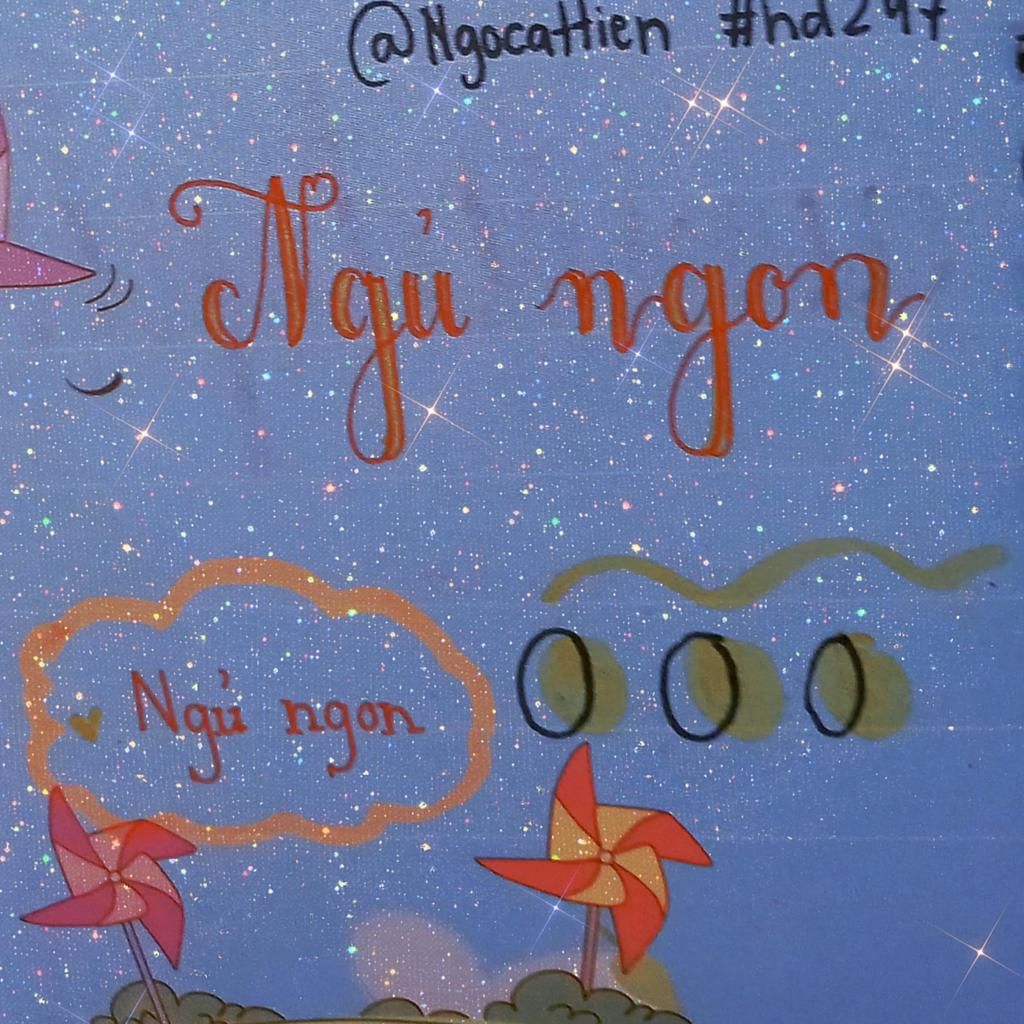 @NgocaHien #hd247
Ngủ ngon
Ngủ ngon